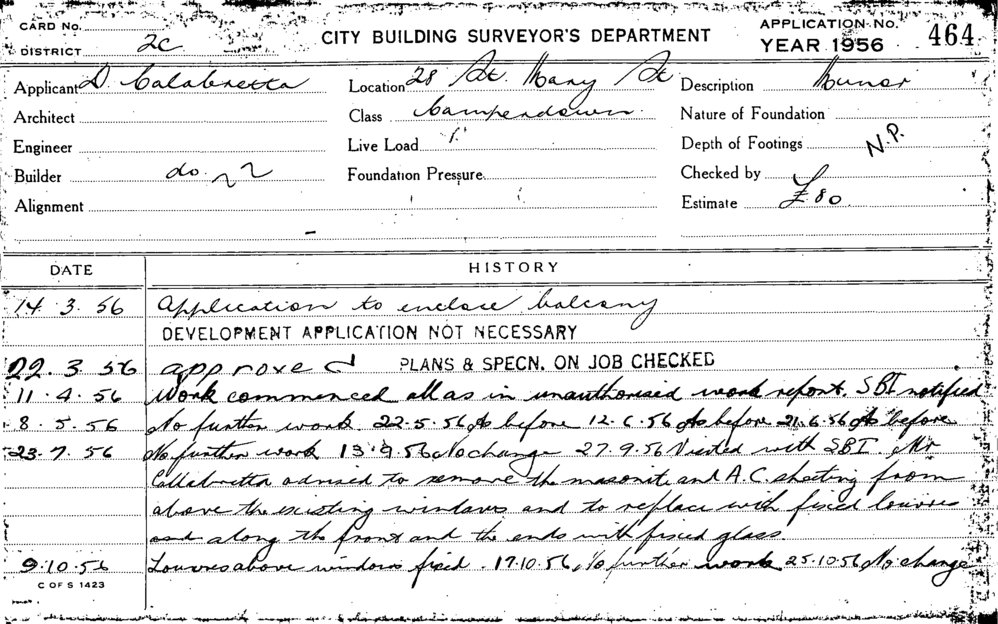 CARD No.
DISTRICT 2C
CITY BUILDING SURVEYOR'S DEPARTMENT
APPLICATION No. 464
YEAR 1956
Applicant D. Calabretta
Location 28 St. Mary St
Description Minor
Architect
Class Camperdown
Nature of Foundation
Engineer
Live Load
Depth of Footings
N.P.
Builder do.
Foundation Pressure
Checked by
Alignment
Estimate £80
DATE HISTORY
14.3.56 Application to enclose balcony
DEVELOPMENT APPLICATION NOT NECESSARY
22.3.56 approved PLANS & SPECN. ON JOB CHECKED
11.4.56 Work commenced all as in unauthorised work report. SBI notified
8.5.56 No further work 22.5.56 As before 12.6.56 As before 21.6.56 As before
23.7.56 No further work 13.9.56 No change 27.9.56 Visited with SBI. Mr
Callabretta advised to remove the masonite and A.C. sheeting from
above the existing windows and to replace with fixed louvres
and along the front and the ends with fixed glass.
9.10.56 Louvres above windows fixed. 17.10.56, No further work 25.10.56 No change
C OF S 1423